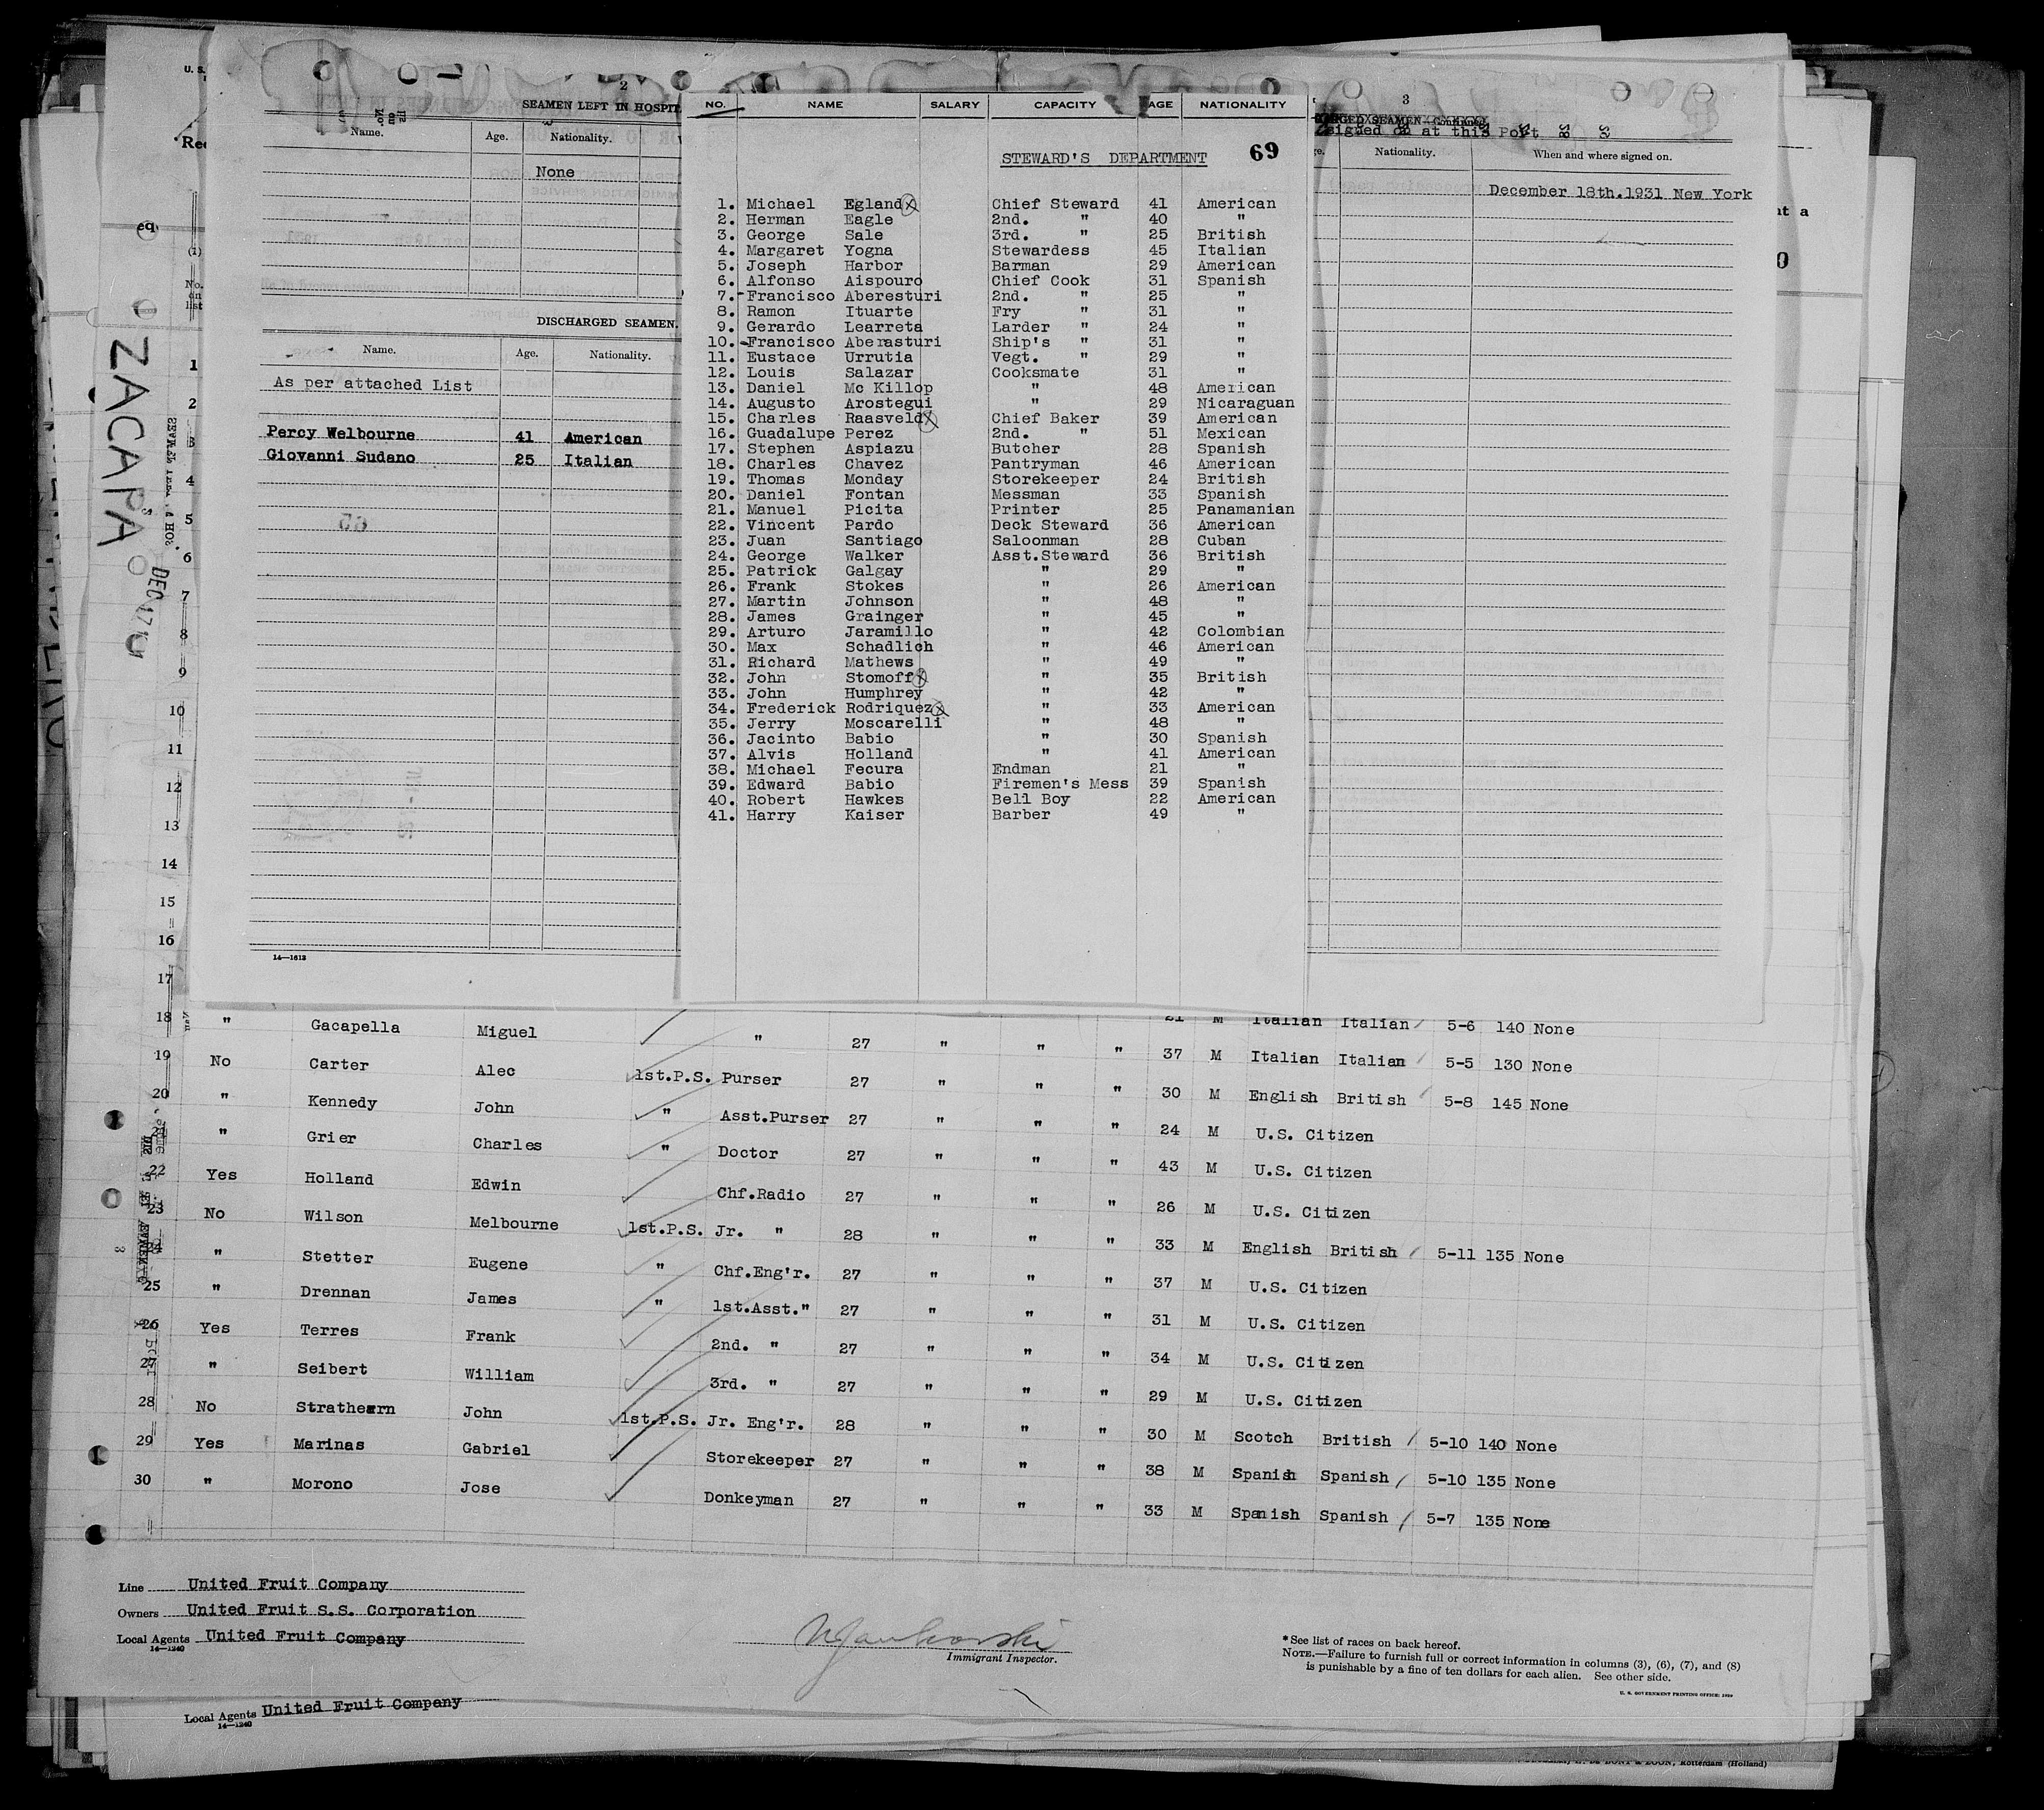 2
SEAMEN LEFT IN HOSPIT
Name. Age. Nationality.
None
DISCHARGED SEAMEN.
Name. Age. Nationality.
As per attached List
Percy Welbourne 41 American
Giovanni Sudano 25 Italian
14—1613
NO. NAME SALARY CAPACITY AGE NATIONALITY
STEWARD'S DEPARTMENT 69
1. Michael Egland Chief Steward 41 American
2. Herman Eagle 2nd. " 40 "
3. George Sale 3rd. " 25 British
4. Margaret Yogna Stewardess 45 Italian
5. Joseph Harbor Barman 29 American
6. Alfonso Aispouro Chief Cook 31 Spanish
7. Francisco Aberesturi 2nd. " 25 "
8. Ramon Ituarte Fry " 31 "
9. Gerardo Learreta Larder " 24 "
10. Francisco Aberasturi Ship's " 31 "
11. Eustace Urrutia Vegt. " 29 "
12. Louis Salazar Cooksmate 31 "
13. Daniel Mc Killop " 48 American
14. Augusto Arostegui " 29 Nicaraguan
15. Charles Raasveld Chief Baker 39 American
16. Guadalupe Perez 2nd. " 51 Mexican
17. Stephen Aspiazu Butcher 28 Spanish
18. Charles Chavez Pantryman 46 American
19. Thomas Monday Storekeeper 24 British
20. Daniel Fontan Messman 33 Spanish
21. Manuel Picita Printer 25 Panamanian
22. Vincent Pardo Deck Steward 36 American
23. Juan Santiago Saloonman 28 Cuban
24. George Walker Asst.Steward 36 British
25. Patrick Galgay " 29 "
26. Frank Stokes " 26 American
27. Martin Johnson " 48 "
28. James Grainger " 45 "
29. Arturo Jaramillo " 42 Colombian
30. Max Schadlich " 46 American
31. Richard Mathews " 49 "
32. John Stomoff " 35 British
33. John Humphrey " 42 "
34. Frederick Rodriquez " 33 American
35. Jerry Moscarelli " 48 "
36. Jacinto Babio " 30 Spanish
37. Alvis Holland " 41 American
38. Michael Fecura Endman 21 "
39. Edward Babio Firemen's Mess 39 Spanish
40. Robert Hawkes Bell Boy 22 American
41. Harry Kaiser Barber 49 "
3
signed on at this Port
Nationality. When and where signed on.
December 18th.1931 New York
ZACAPA
DEC 17
U. S.
No. on list
1
2
3
4
5
6
7
8
9
10
11
12
13
14
15
16
17
21 M Italian Italian 5-6 140 None
18 " Gacapella Miguel " 27 " " " 37 M Italian Italian 5-5 130 None
19 No Carter Alec 1st.P.S. Purser 27 " " " 30 M English British 5-8 145 None
20 " Kennedy John " Asst.Purser 27 " " " 24 M U.S. Citizen
21 " Grier Charles " Doctor 27 " " " 43 M U.S. Citizen
22 Yes Holland Edwin Chf.Radio 27 " " " 26 M U.S. Citizen
23 No Wilson Melbourne 1st.P.S. Jr. " 28 " " " 33 M English British 5-11 135 None
24 " Stetter Eugene " Chf.Eng'r. 27 " " " 37 M U.S. Citizen
25 " Drennan James " 1st.Asst." 27 " " " 31 M U.S. Citizen
26 Yes Terres Frank 2nd. " 27 " " " 34 M U.S. Citizen
27 " Seibert William 3rd. " 27 " " " 29 M U.S. Citizen
28 No Strathearn John 1st.P.S. Jr. Eng'r. 28 " " " 30 M Scotch British 5-10 140 None
29 Yes Marinas Gabriel Storekeeper 27 " " " 38 M Spanish Spanish 5-10 135 None
30 " Morono Jose Donkeyman 27 " " " 33 M Spanish Spanish 5-7 135 None
Line United Fruit Company
Owners United Fruit S.S. Corporation
Local Agents United Fruit Company
14—1240
Immigrant Inspector.
* See list of races on back hereof.
NOTE.—Failure to furnish full or correct information in columns (3), (6), (7), and (8)
is punishable by a fine of ten dollars for each alien. See other side.
U. S. GOVERNMENT PRINTING OFFICE: 1930
Local Agents United Fruit Company
14—1240
Rotterdam (Holland)